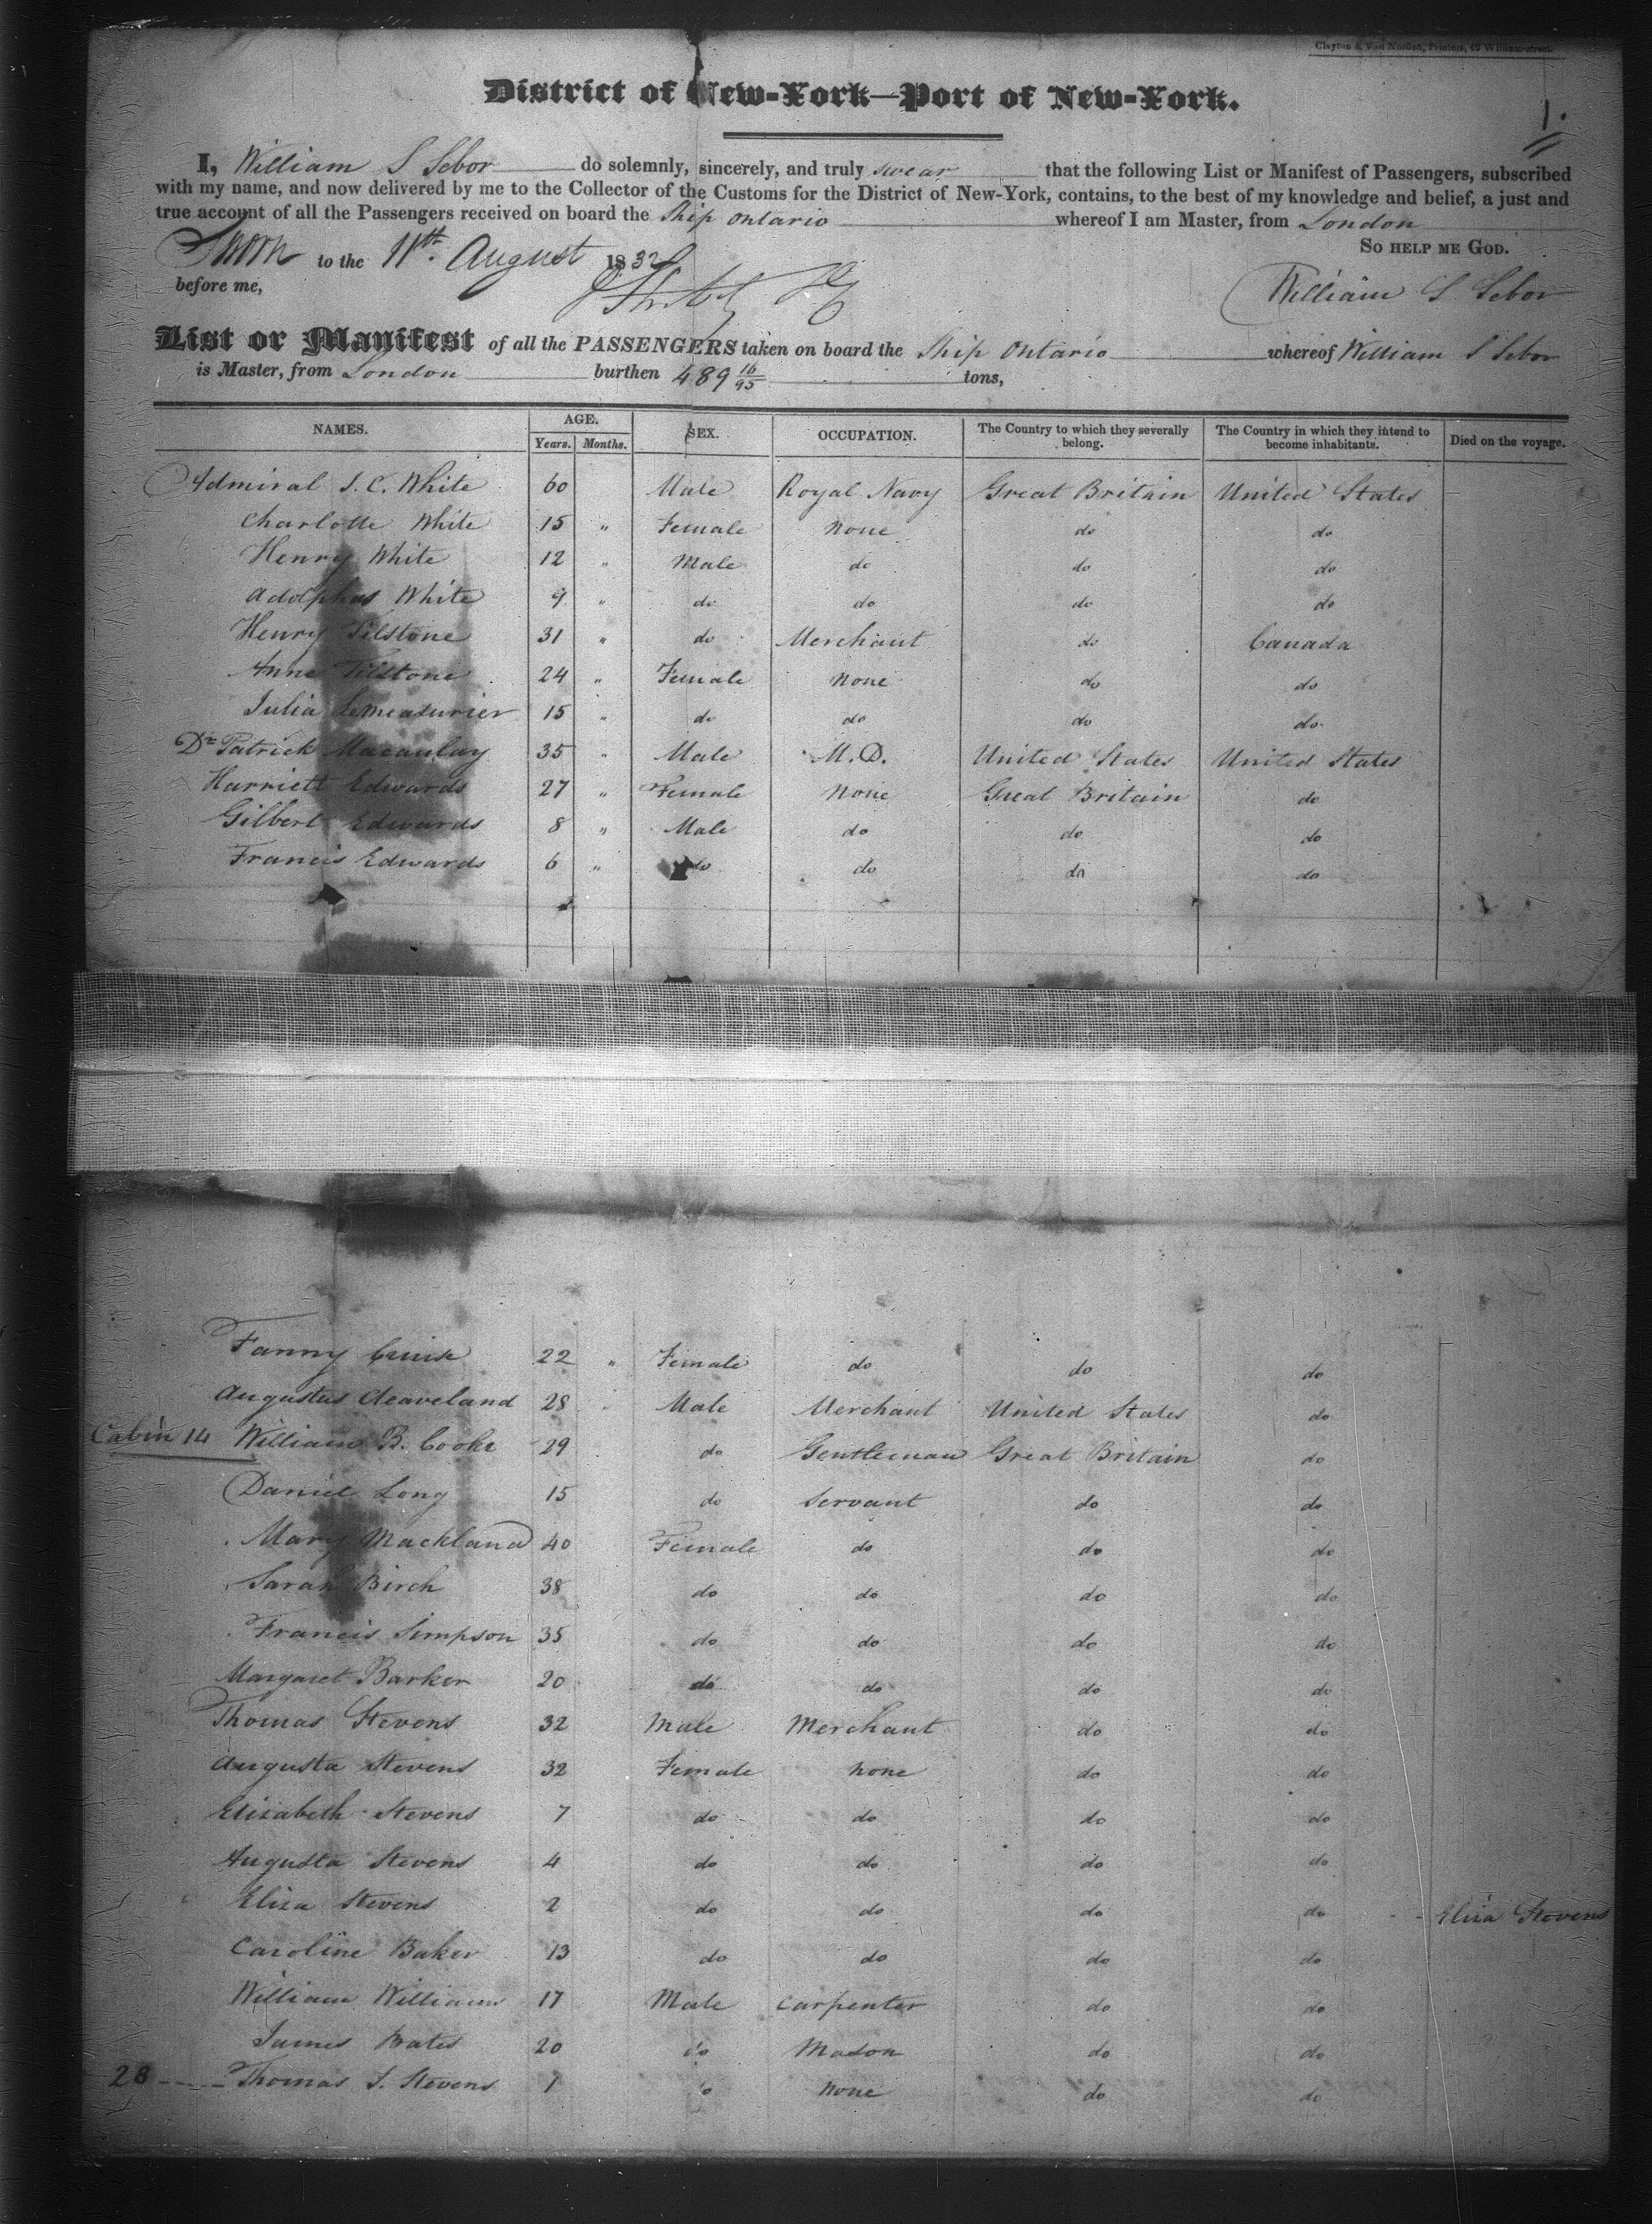 Clayton & Van Norden, Printers, 42 William-street.
District of New-York—Port of New-York.
1.
I, William S Sebor do solemnly, sincerely, and truly swear that the following List or Manifest of Passengers, subscribed
with my name, and now delivered by me to the Collector of the Customs for the District of New-York, contains, to the best of my knowledge and belief, a just and
true account of all the Passengers received on board the Ship Ontario whereof I am Master, from London
So help me God.
Sworn to the 11th August 1832
before me,
William S Sebor
List or Manifest of all the PASSENGERS taken on board the Ship Ontario whereof William S Sebor
is Master, from London burthen 489 16/95 tons,
NAMES. AGE. Years. Months. SEX. OCCUPATION. The Country to which they severally belong. The Country in which they intend to become inhabitants. Died on the voyage.
Admiral J. C. White 60 Male Royal Navy Great Britain United States
Charlotte White 15 " Female None do do
Henry White 12 " Male do do do
Adolphus White 9 " do do do do
Henry Tilstone 31 " do Merchant do Canada
Anne Tilstone 24 " Female None do do
Julia Lemeasurier 15 " do do do do
Dr Patrick Macaulay 35 " Male M.D. United States United States
Harriett Edwards 27 " Female None Great Britain do
Gilbert Edwards 8 " Male do do do
Francis Edwards 6 " do do do do
Fanny Cruise 22 " Female do do do
Augustus Cleaveland 28 " Male Merchant United States do
Cabin 14 William B. Cooke 29 do Gentleman Great Britain do
Daniel Long 15 do Servant do do
Mary Mackland 40 Female do do do
Sarah Birch 38 do do do do
Francis Simpson 35 do do do do
Margaret Barker 20 do do do do
Thomas Stevens 32 Male Merchant do do
Augusta Stevens 32 Female None do do
Elizabeth Stevens 7 do do do do
Augusta Stevens 4 do do do do
Eliza Stevens 2 do do do do Eliza Stevens
Caroline Baker 13 do do do do
William Williams 17 Male Carpenter do do
James Bates 20 do Mason do do
28 Thomas J. Stevens 1 do None do do